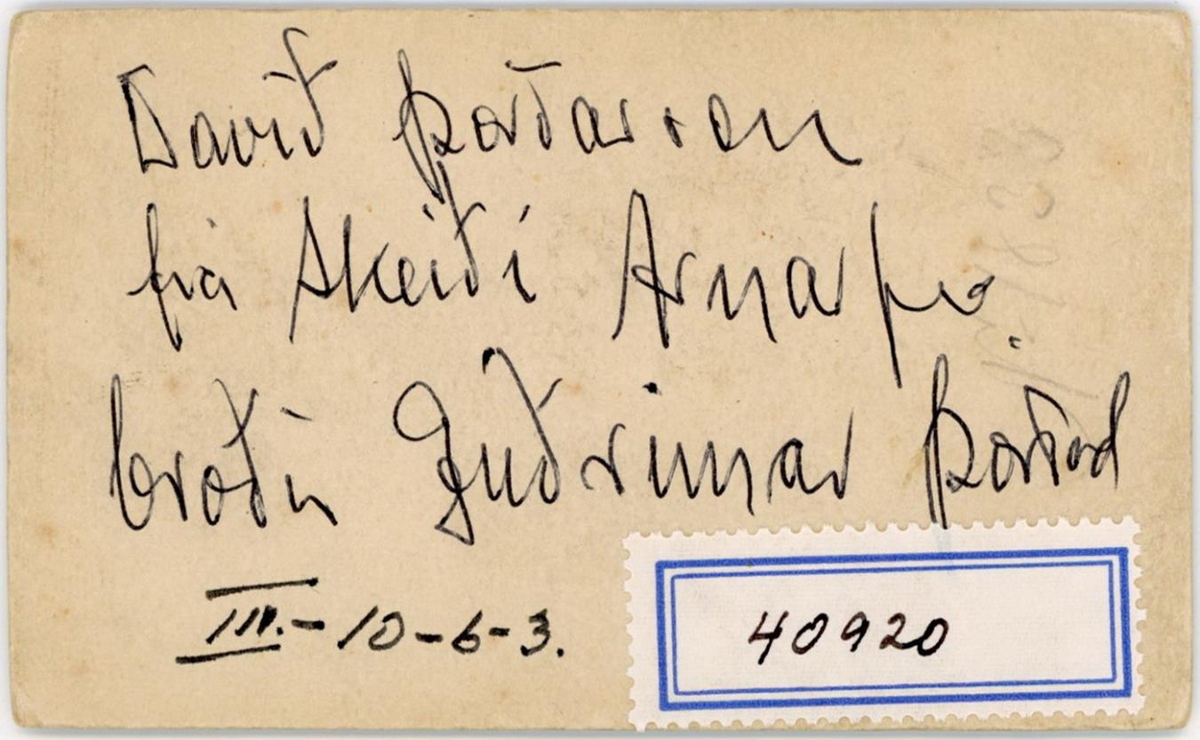 Davíð Þórðarson
frá Skeiði Arnarfi.
bróðir Guðrúnar Þórðard
III.-10-6-3.
40920